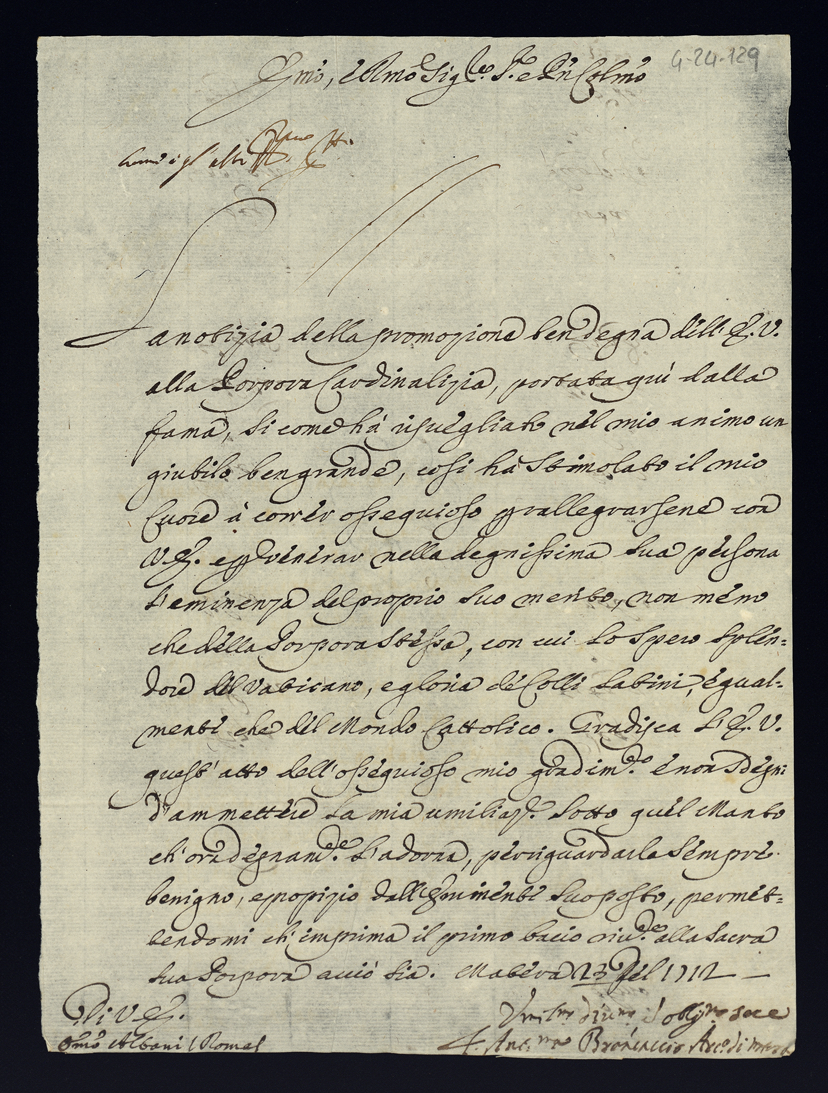 Em̃o, e Rmõ Sig.re P.re e Prñ Colmõ
4-24-129
come i gl' altri
La notizia della promozione ben degna dell' E. V.
alla Porpora Cardinalizia, portata quì dalla
fama, si come hà risvegliato nel mio animo un
giubilo ben grande, così hà stimolato il mio
Cuore à correr ossequioso per rallegrarsene con
V. E. e per venerar nella degnissima sua persona
l'eminenza del proprio suo merito, non meno
che della Porpora stessa, con cui lo spero splen=
dore del Vaticano, e gloria de Colli Latini, egual=
mente che del Mondo Cattolico. Gradisca l'E. V.
quest' atto dell' ossequioso mio
d'ammettere la mia sotto quel Manto
ch' ora degnam.te l'adorna, per riguardarla sempre
benigno, e propizio dall' suo posto, permet=
tendomi ch' imprima il primo bacio riv.te alla Sacra
sua Porpora acciò sia. Matera 23 del 1712
Di V. E.
Albani (Roma)
Ant. Brancaccio Arc.o di